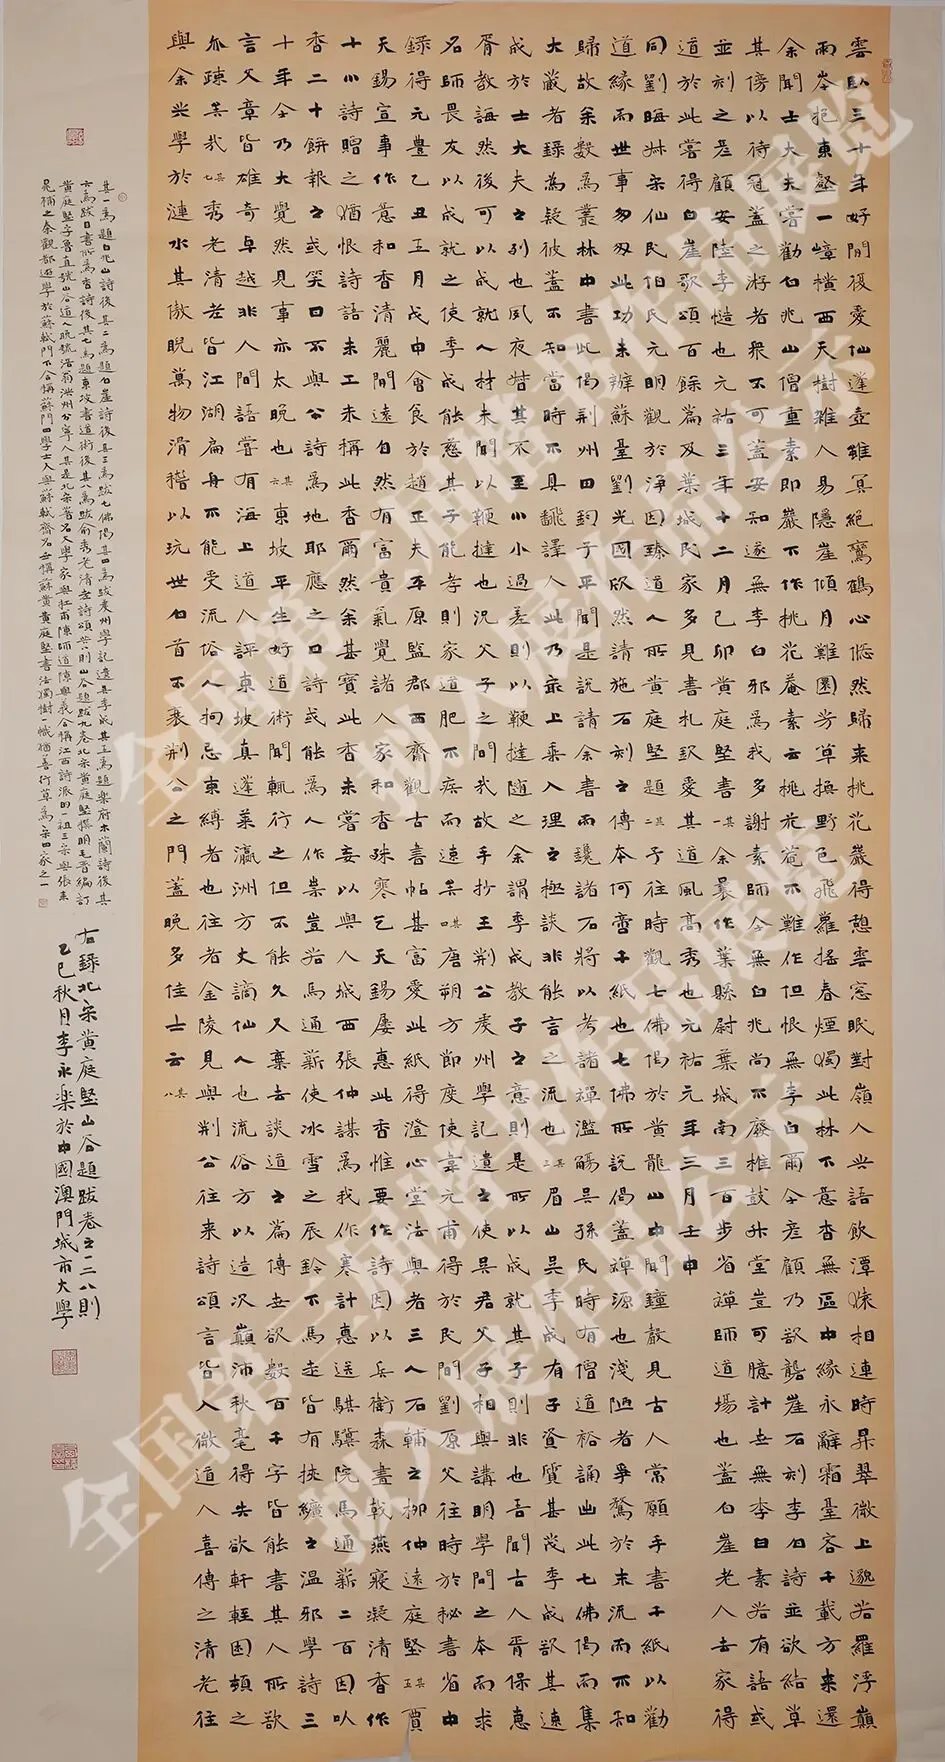 雲臥三十年好閒復愛仙蓬壺雖冥絕鸞鶴心悠然歸來桃花巖得憩雲窓眠對嶺人共語飲潭猿相連時昇翠微上邈若羅浮巔
兩岑抱東壑一嶂橫西天樹雜人易隱崖傾月難圓芳草換野色飛蘿搖春煙獨此林下意杳無區中緣永辭霜臺客千載方来還
余聞士大夫嘗勸白兆山僧重素即巖下作桃花菴素云桃花菴不難作但恨無李白爾今彥顧乃欲礱崖石刻李白詩並欲結草
其傍以待冠蓋之游者衆不可蓋安知遂無李白邪為我多謝素師今無白兆尚不廢椎鼓升堂豈可臆計世無李白素若有語或
並刻之彥顧安陸李愭也元祐三年十二月己卯黃庭堅書其一余曩作葉縣尉葉城南三百步省禪師道場也蓋白崖老人去家得
道於此嘗得白崖歌頌百餘篇及葉城民家多見書札欽愛其道風高秀也元祐元年三月壬申
同劉晦叔宋仙民伯氏元明觀於淨因臻道人所黃庭堅題其二予往時觀七佛偈於黃龍山中聞鐘聲見古人常願手書千紙以勸
道緣而世事匆匆此功未辦蘇臺劉光國欣然請施石刻之傳本何啻千紙也七佛所說偈蓋禪源也淺陋者爭騖於末流而不知
歸故余數為叢林中書此偈荆州田鈞子平聞是說請余書而鑱諸石將以考諸禪濫觴吳孫氏時有僧道裕誦出此七佛偈而集
大藏者錄為疑彼蓋不知當時不具翻譯人此乃最上乘入理之極談非能言之流也其三眉山吳季成有子資質甚茂季成欲其速
成於士大夫之列也夙夜督其不至小小過差則以鞭撻隨之余謂季成教子之意則是所以成就其子則非也吾聞古人胥保惠
胥教誨然後可以成就人材未聞以鞭撻也況父子之間哉故手抄王荆公虔州學記遺之使吳君父子相與講明學問之本而求
名師畏友以成就之使季成能慈其子能孝則家道肥不疾而速矣其四唐朔方節度使韋元甫得於民間劉原父往時於秘書省中
錄得元豐乙丑五月戊申會食於趙正夫平原監郡西齋觀古書帖甚富愛此紙得澄心堂法與者三人石輔之柳仲遠庭堅其五賈
天錫宣事作意和香清麗閒遠自然有富貴氣覺諸人家和香殊寒乞天錫屢惠此香惟要作詩因以兵衛森畫戟燕寢凝清香作
十小詩贈之猶恨詩語未工未稱此香爾然余甚寶此香未嘗妄以與人城西張仲謀為我作寒計惠送騏驥院馬通薪二百因以
香二十餅報之或笑曰不與公詩為地耶應之曰詩或能為人作祟豈若馬通薪使冰雪之辰鈴下馬走皆有挾纊之溫邪學詩三
十年今乃大覺然見事亦太晚也其六東坡平生好道術聞輒行之但不能久又棄去談道之篇傳世欲數百千字皆能書其人所欲
言文章皆雄奇卓越非人間語嘗有海上道人評東坡真蓬萊瀛洲方丈謫仙人也流俗方以造次顛沛秋毫得失欲軒輊困頓之
亦疎矣哉其七秀老清老皆江湖扁舟不能受流俗人拘忌束縛者也往者金陵見與荆公往来詩頌言皆入微道人喜傳之清老往
與余共學於漣水其傲睨萬物滑稽以玩世白首不衰荆公之門蓋晚多佳士云其八
其一為題白兆山詩後其二為題白崖詩後其三為跋七佛偈其四為跋虔州學記遺吳季成其五為題樂府木蘭詩後其
六為跋自書所為香詩後其七為題東坡書道術後其八為跋俞秀老清老詩頌共八則山谷題跋九卷北宋黃庭堅撰明毛晉編訂
黃庭堅字魯直號山谷道人晚號涪翁洪州分寧人其是北宋著名文學家與杜甫陳師道陳與義合稱江西詩派的一祖三宗與張耒
晁補之秦觀都遊學於蘇軾門下合稱蘇門四學士人與蘇軾齊名世稱蘇黃黃庭堅書法獨樹一幟猶善行草為宋四家之一
右錄北宋黃庭堅山谷題跋卷之一二八則
乙巳秋月李永樂於中國澳門城市大學
全国第三届楷书作品展览
拟入展作品公示
全国第三届楷书作品展览
拟入展作品公示